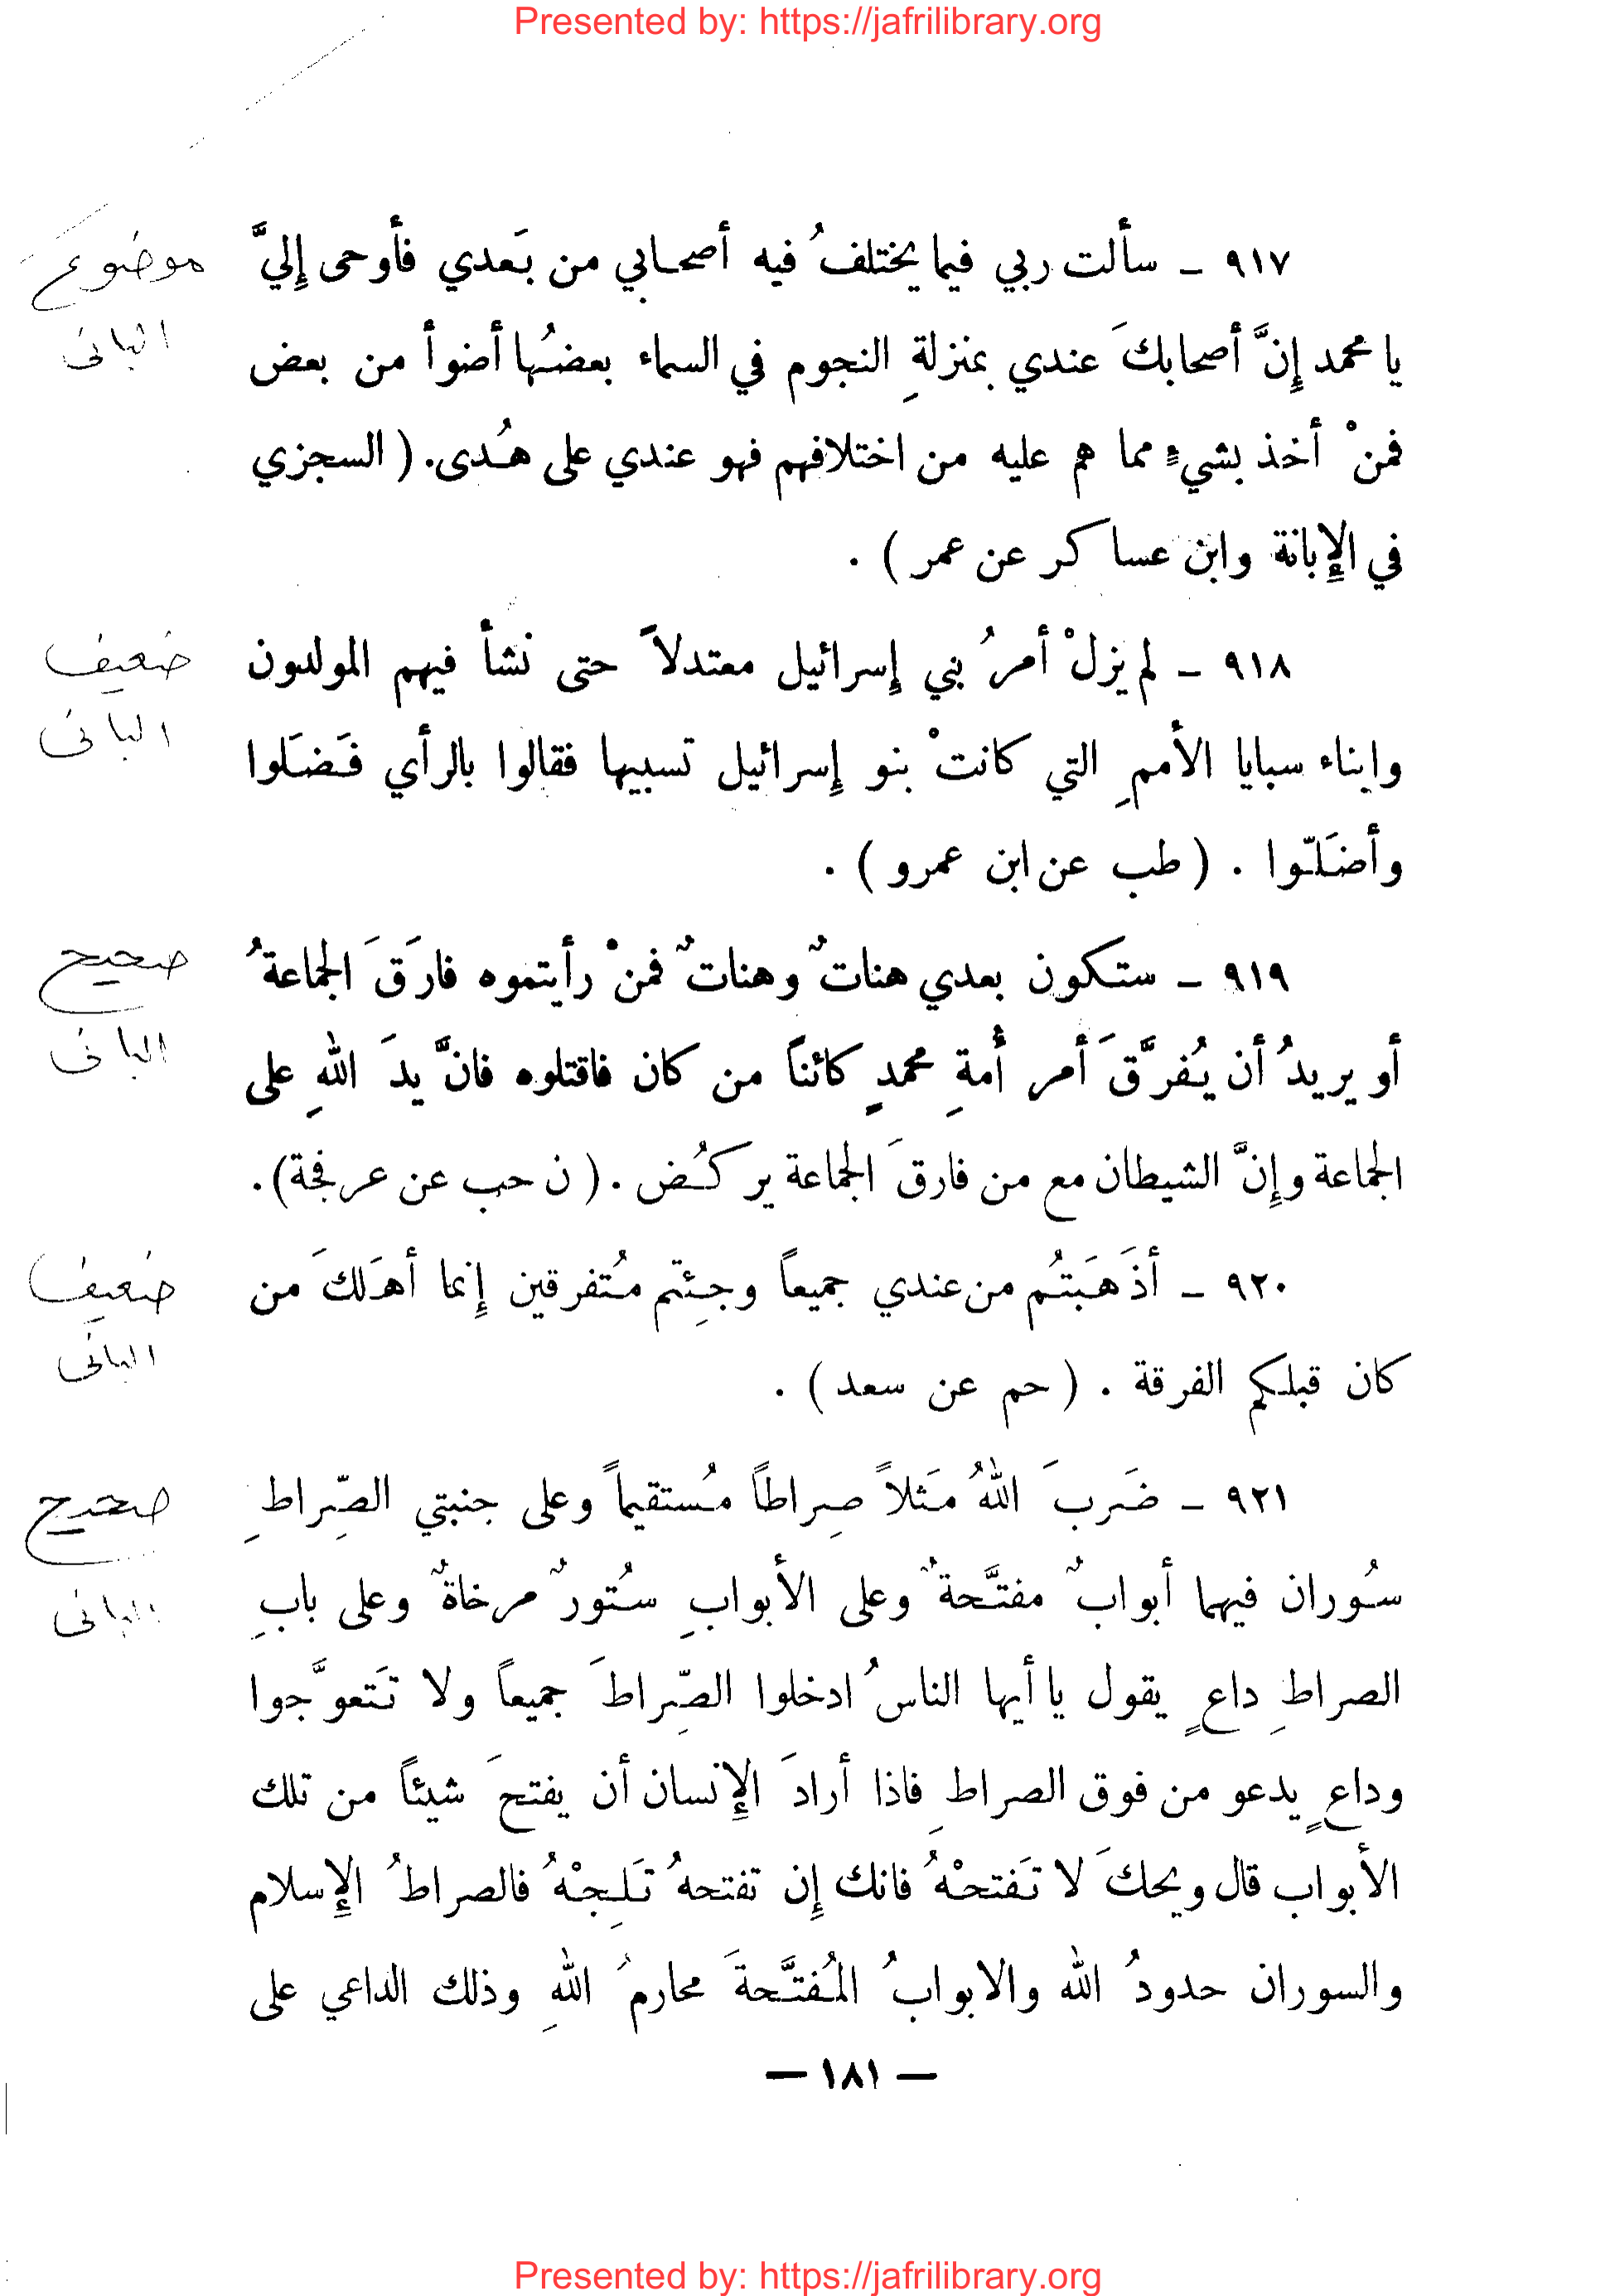 Presented by: https://jafrilibrary.org
٩١٧ ـ سألت ربي فيما يختلفُ فيه أصحابي من بَعدي فأوحى إِليَّ
موضوع
الباني
يا محمد إِنَّ أصحابكَ عندي بمنزلةِ النجوم في السماء بعضُها أضوأ من بعض
فمنْ أخذ بشيءٍ مما هم عليه من اختلافهم فهو عندي على هُدى. ( السجزي
في الإِبانة وابن عساكر عن عمر ) .
٩١٨ ـ لم يزلْ أمرُ بني إِسرائيل معتدلاً حتى نشأ فيهم المولدون
ضعيف
البانى
وابناء سبايا الأممِ التي كانتْ بنو إِسرائيل تسبيها فقالوا بالرأي فَضَلوا
وأضَلّوا . ( طب عن ابن عمرو ) .
٩١٩ ـ ستكون بعدي هناتٌ وهناتٌ فمنْ رأيتموه فارَقَ الجماعةُ
صحيح
البانى
أو يريدُ أن يُفرَّقَ أمر أُمةِ محمدٍ كائناً من كان فاقتلوه فانَّ يدَ اللهِ على
الجماعة وإِنَّ الشيطان مع من فارقَ الجماعة يركُض . ( ن حب عن عرفجة ) .
٩٢٠ ـ أذَهَبتُم من عندي جميعاً وجِئتم مُتفرقين إِنما أهَلكَ من
ضعيف
البانى
كان قبلكم الفرقة . ( حم عن سعد ) .
٩٢١ ـ ضَربَ اللهُ مَثلاً صِراطاً مُستقيماً وعلى جنبتي الصِّراطِ
صحيح
البانى
سُوران فيهما أبوابٌ مفتَّحةٌ وعلى الأبوابِ ستُورٌ مرخاةٌ وعلى بابِ
الصراطِ داعٍ يقول يا أيها الناسُ ادخلوا الصِّراطَ جميعاً ولا تَتعوَّجوا
وداعٍ يدعو من فوق الصراطِ فاذا أرادَ الإِنسان أن يفتحَ شيئاً من تلك
الأبواب قال ويحكَ لا تَفتحْهُ فانك إِن تفتحهُ تَلِجْهُ فالصراطُ الإِسلام
والسوران حدودُ الله والابوابُ المُفتَّحةَ محارمُ اللهِ وذلك الداعي على
— ١٨١ —
Presented by: https://jafrilibrary.org